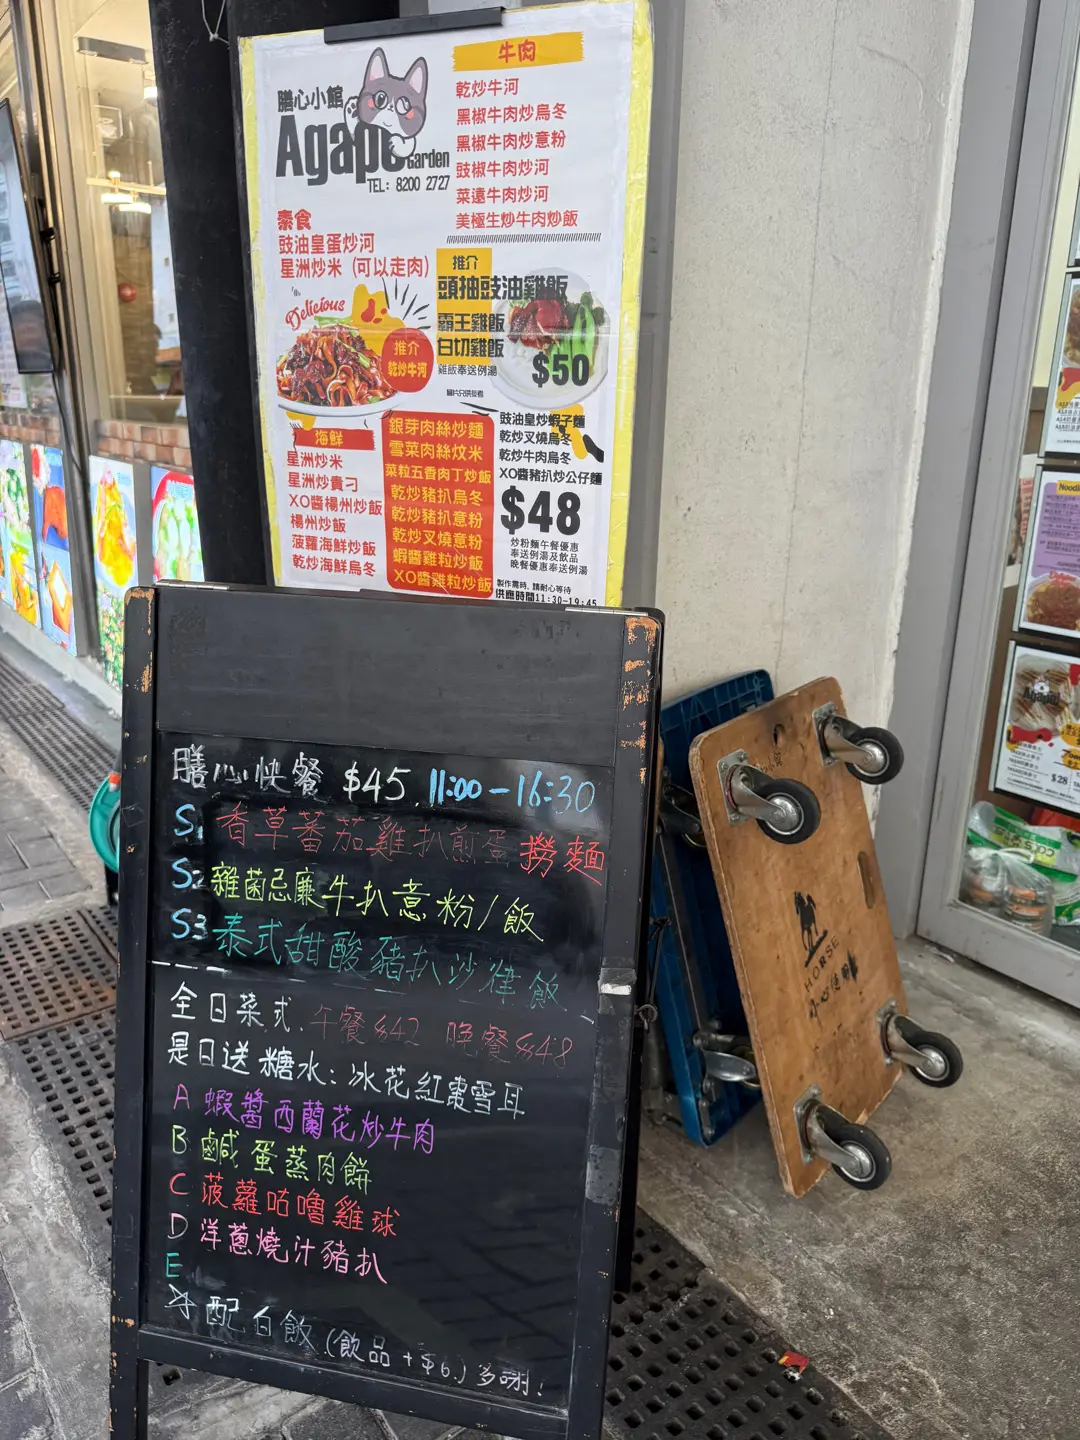 膳心小館
Agape Garden
TEL: 8200 2727
素食
豉油皇蛋炒河
星洲炒米 (可以走肉)
Delicious
推介
乾炒牛河
牛肉
乾炒牛河
黑椒牛肉炒烏冬
黑椒牛肉炒意粉
豉椒牛肉炒河
菜遠牛肉炒河
美極生炒牛肉炒飯
推介
頭抽豉油雞飯
霸王雞飯
白切雞飯
雞飯奉送例湯
$50
圖片只供參考
海鮮
星洲炒米
星洲炒貴刁
XO醬楊州炒飯
楊州炒飯
菠蘿海鮮炒飯
乾炒海鮮烏冬
銀芽肉絲炒麵
雪菜肉絲炆米
菜粒五香肉丁炒飯
乾炒豬扒烏冬
乾炒豬扒意粉
乾炒叉燒意粉
蝦醬雞粒炒飯
XO醬雞粒炒飯
豉油皇炒蝦子麵
乾炒叉燒烏冬
乾炒牛肉烏冬
XO醬豬扒炒公仔麵
$48
炒粉麵午餐優惠
奉送例湯及飲品
晚餐優惠奉送例湯
製作需時, 請耐心等待
供應時間11:30-19:45
膳心快餐 $45. 11:00-16:30
S1 香草蕃茄雞扒煎蛋撈麵
S2 雜菌忌廉牛扒意粉/飯
S3 泰式甜酸豬扒沙律飯
全日菜式. 午餐$42 晚餐$48
是日送糖水: 冰花紅棗雪耳
A 蝦醬西蘭花炒牛肉
B 鹹蛋蒸肉餅
C 菠蘿咕嚕雞球
D 洋蔥燒汁豬扒
E
☆配白飯 (飲品+$6.) 多謝!
HORSE
Agape
$28